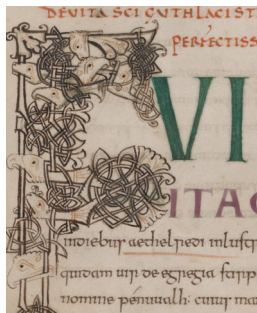 DE VITA SCI GUTHLACI ST
PERFECTISS
FUI
ITAQ
In diebus aethelredi inlustr
quidam uir de egregia stirp
nomine penuualh: cuius ma